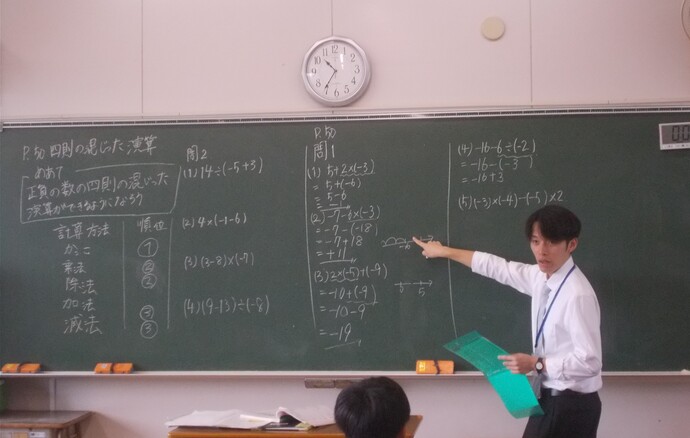 P.50 四則の混じった演算
めあて
正負の数の四則の混じった
演算ができるようになろう
計算方法 順位
かっこ ①
乗法 ②
除法 ②
加法 ③
減法 ③
問2
(1) 14÷(-5+3)
(2) 4×(-1-6)
(3) (3-8)×(-7)
(4) (9-13)÷(-8)
P.50
問1
(1) 5+2×(-3)
= 5+(-6)
= 5-6
(2) -7-6×(-3)
= -7-(-18)
= -7+18
= +11
(3) 2×(-5)+(-9)
= -10+(-9)
= -10-9
= -19
(4) -16-6÷(-2)
= -16-(-3)
= -16+3
(5) (-3)×(-4)-(-5)×2